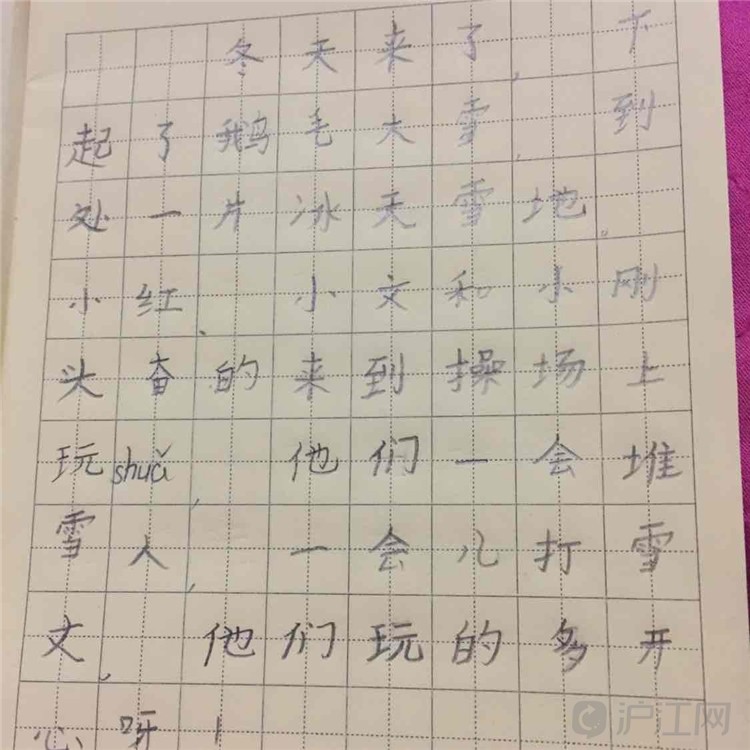 冬天来了,下
起了鹅毛大雪,到
处一片冰天雪地。
小红、小文和小刚
头奋的来到操场上
玩shuǎ,他们一会堆
雪人,一会儿打雪
丈,他们玩的多开
心呀!
沪江网